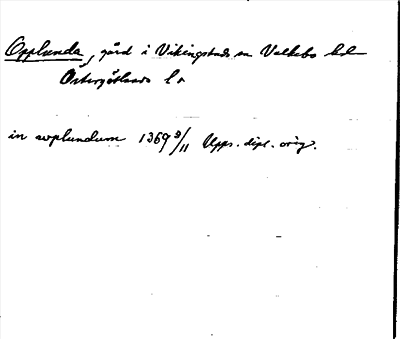 Opplunda, gård i Vikingstads sn Valkebo hd
Östergötlands l.
in oplundum 1369 9/11 Upps. dipl. orig.